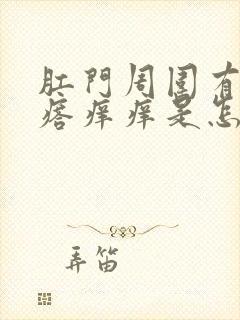 肛門周圍有
痞痒痒是怎
弄笛